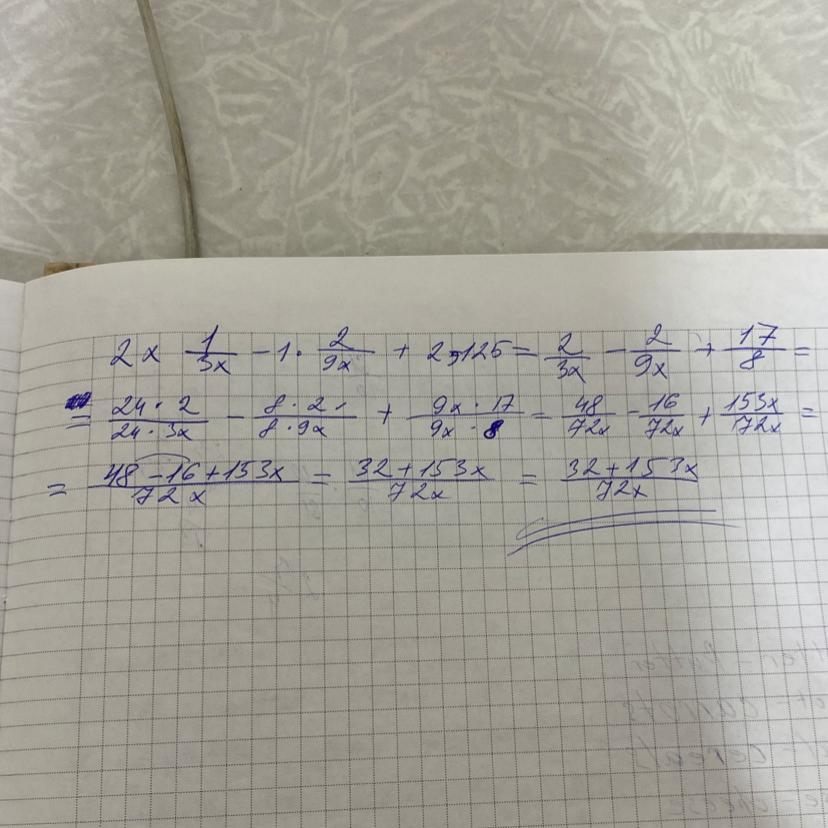 2 × 1/3x − 1 · 2/9x + 2,125 = 2/3x − 2/9x + 17/8 =
= 24 · 2/24 · 3x − 8 · 2/8 · 9x + 9x · 17/9x · 8 = 48/72x − 16/72x + 153x/72x =
= 48 − 16 + 153x/72x = 32 + 153x/72x = 32 + 153x/72x